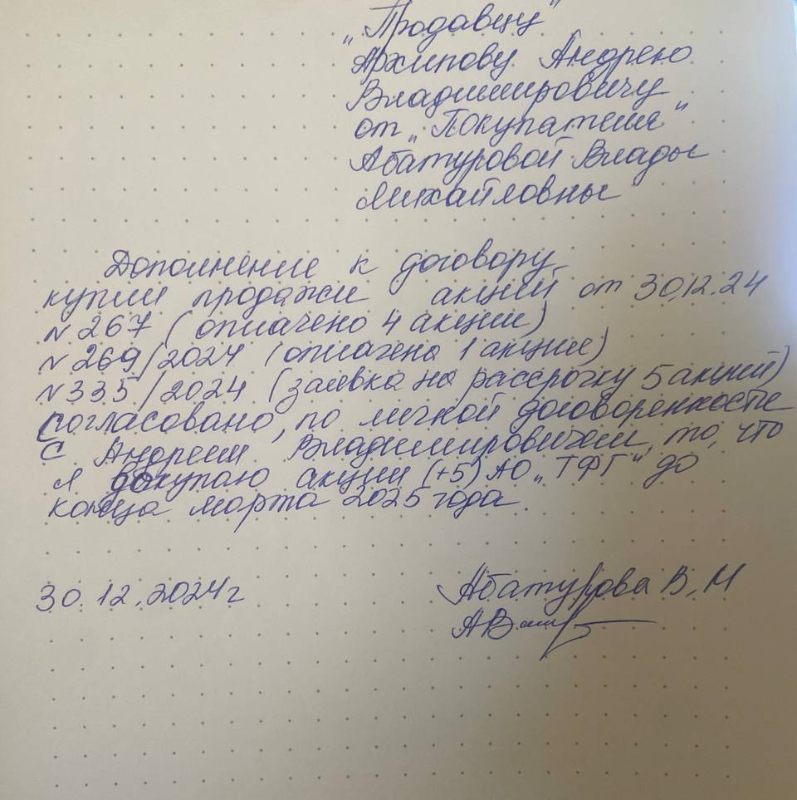 "Продавцу"
Архипову Андрею
Владимировичу
от "Покупателя"
Абатуровой Влады
Михайловны
Дополнение к договору
купли продажи акций от 30.12.24
№267 (оплачено 4 акции)
№269/2024 (оплачена 1 акция)
№335/2024 (заявка на рассрочку 5 акций)
Согласовано, по личной договоренности
с Андреем Владимировичем, то, что
я докупаю акции (+5) АО "ТФГ" до
конца марта 2025 года.
30.12.2024г
Абатурова В.М